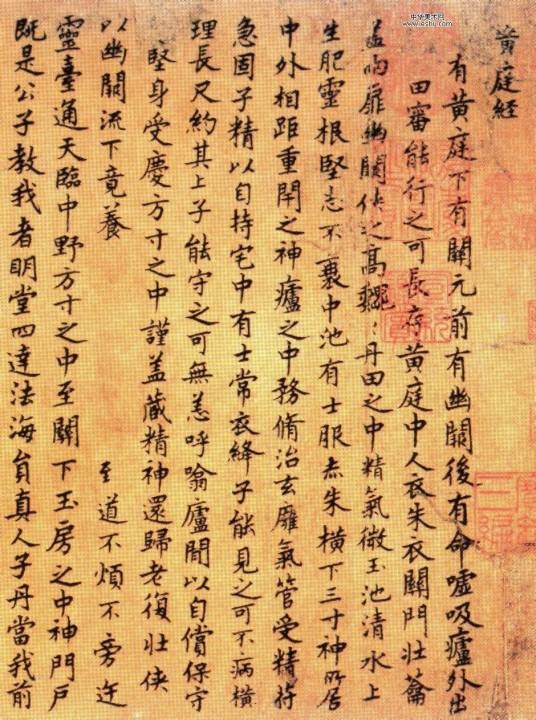 中华美术网
www.ieshu.com
黃庭経
有黃庭下有關元前有幽闕後有命噓吸廬外出
田審能行之可長存黃庭中人衣朱衣關門壯蘥
盖兩扉幽闕俠之高巍〻丹田之中精氣微玉池清水上
生肥靈根堅志不衰中池有士服赤朱橫下三寸神所居
中外相距重閇之神廬之中務脩治玄廱氣管受精符
急固子精以自持宅中有士常衣絳子能見之可不病橫
理長尺約其上子能守之可無恙呼噏廬間以自償保守
堅身受慶方寸之中謹盖蔵精神還歸老復壯俠
以幽闕流下竟養 至道不煩不旁迕
靈臺通天臨中野方寸之中至關下玉房之中神門戶
既是公子教我者明堂四達法海負真人子丹當我前